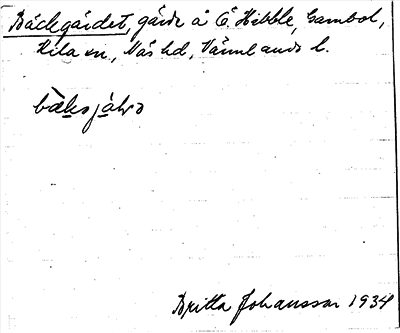 Bäckgärdet, gärde å Ö. Hibble, Gambol,
Kila sn, Näs hd, Värmlands l.
Britta Johansson 1934